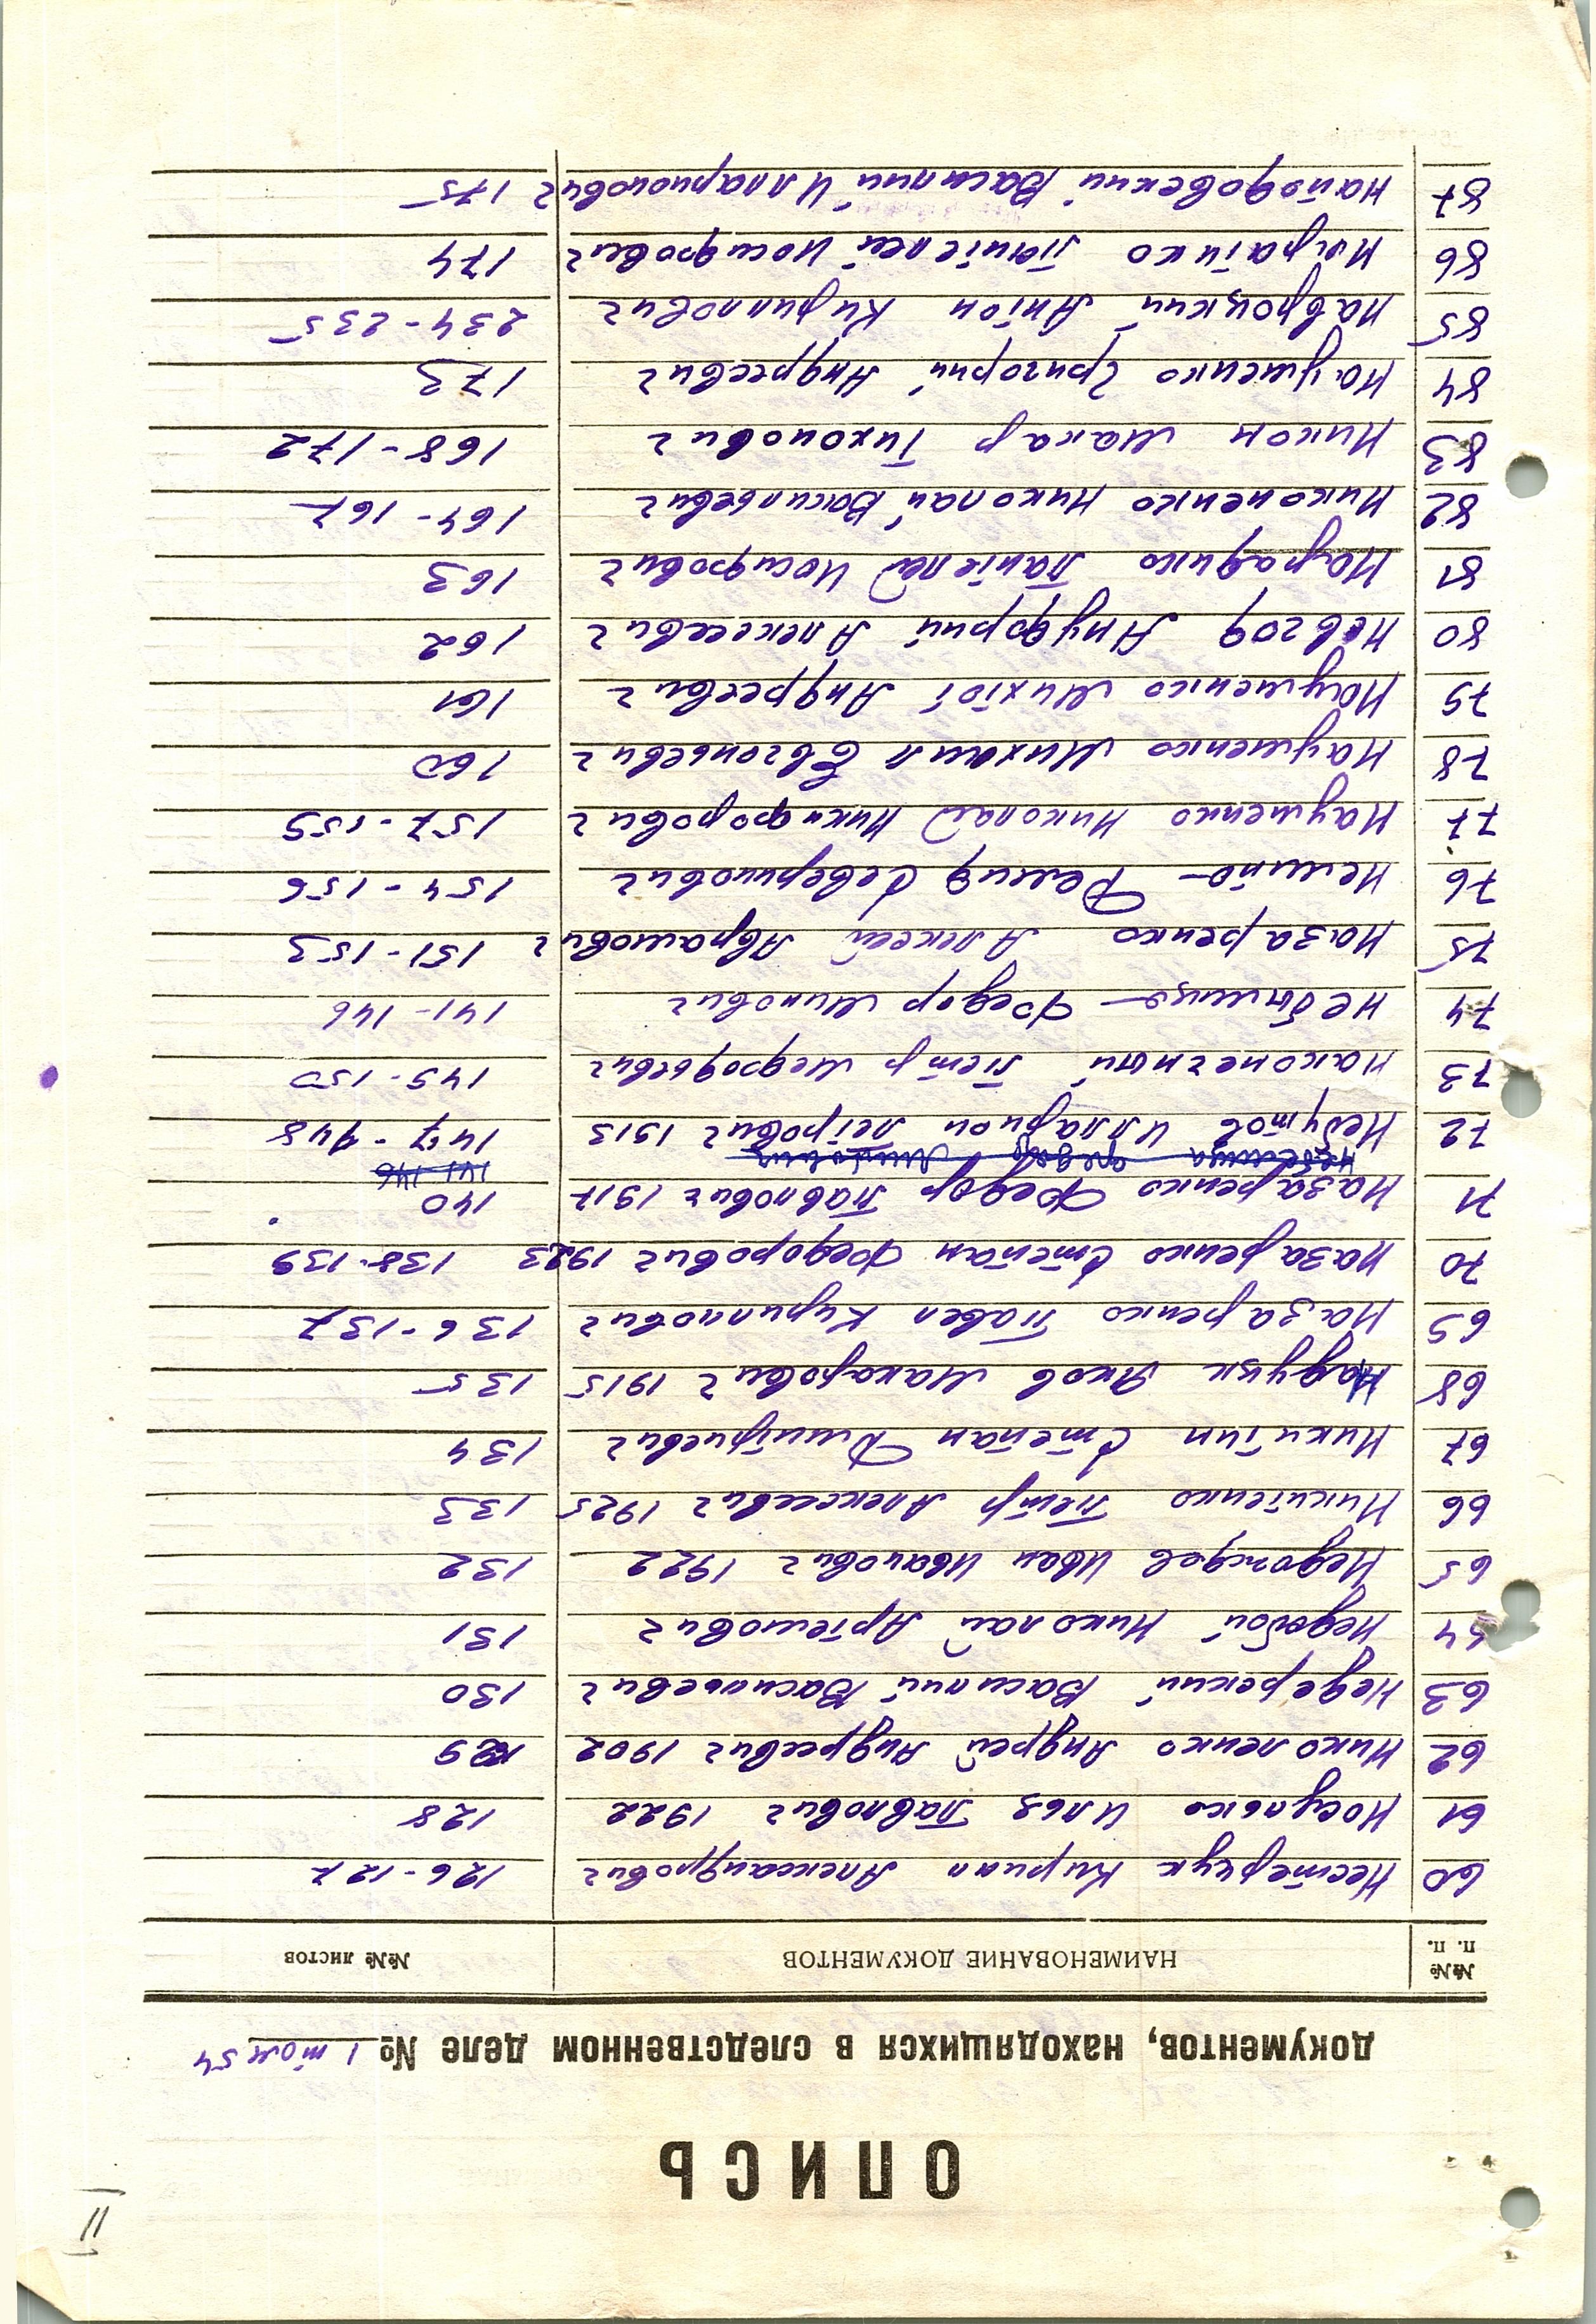 II
ОПИСЬ
документов, находящихся в следственном деле № 1 том 54
№№ п. п. НАИМЕНОВАНИЕ ДОКУМЕНТОВ №№ листов
60 Нестерчук Кирилл Александрович 126-127
61 Носулько Илья Павлович 1922 128
62 Николенко Андрей Андреевич 1902 129
63 Недерский Василий Васильевич 130
64 Недобой Николай Артемович 131
65 Недождов Иван Иванович 1922 132
66 Никитенко Петр Алексеевич 1925 133
67 Никитин Степан Дмитриевич 134
68 Яков Макарович 1915 135
69 Назаренко Павел Кириллович 136-137
70 Назаренко Степан Федорович 1923 138-139
71 Назаренко Федор Павлович 1917 140
Небылица Федор Минович 141 146
72 Илларион Петрович 1913 147-148
73 Наконечный Петр Мефодьевич 149-150
74 Небылица Федор Минович 141-146
75 Назаренко Алексей Абрамович 151-153
76 Северинович 154-156
77 Науменко Николай Никифорович 157-159
78 Науменко Михаил Евгеньевич 160
79 Науменко Андреевич 161
80 Невгод Ануфрий Алексеевич 162
81 Пантелей Иосифович 163
82 Никоненко Николай Васильевич 164-167
83 Никон Макар Тихонович 168-172
84 Науменко Григорий Андреевич 173
85 Навроцкий Антон Кириллович 234-235
86 Пантелей Иосифович 174
87 Найдовский Василий Илларионович 175